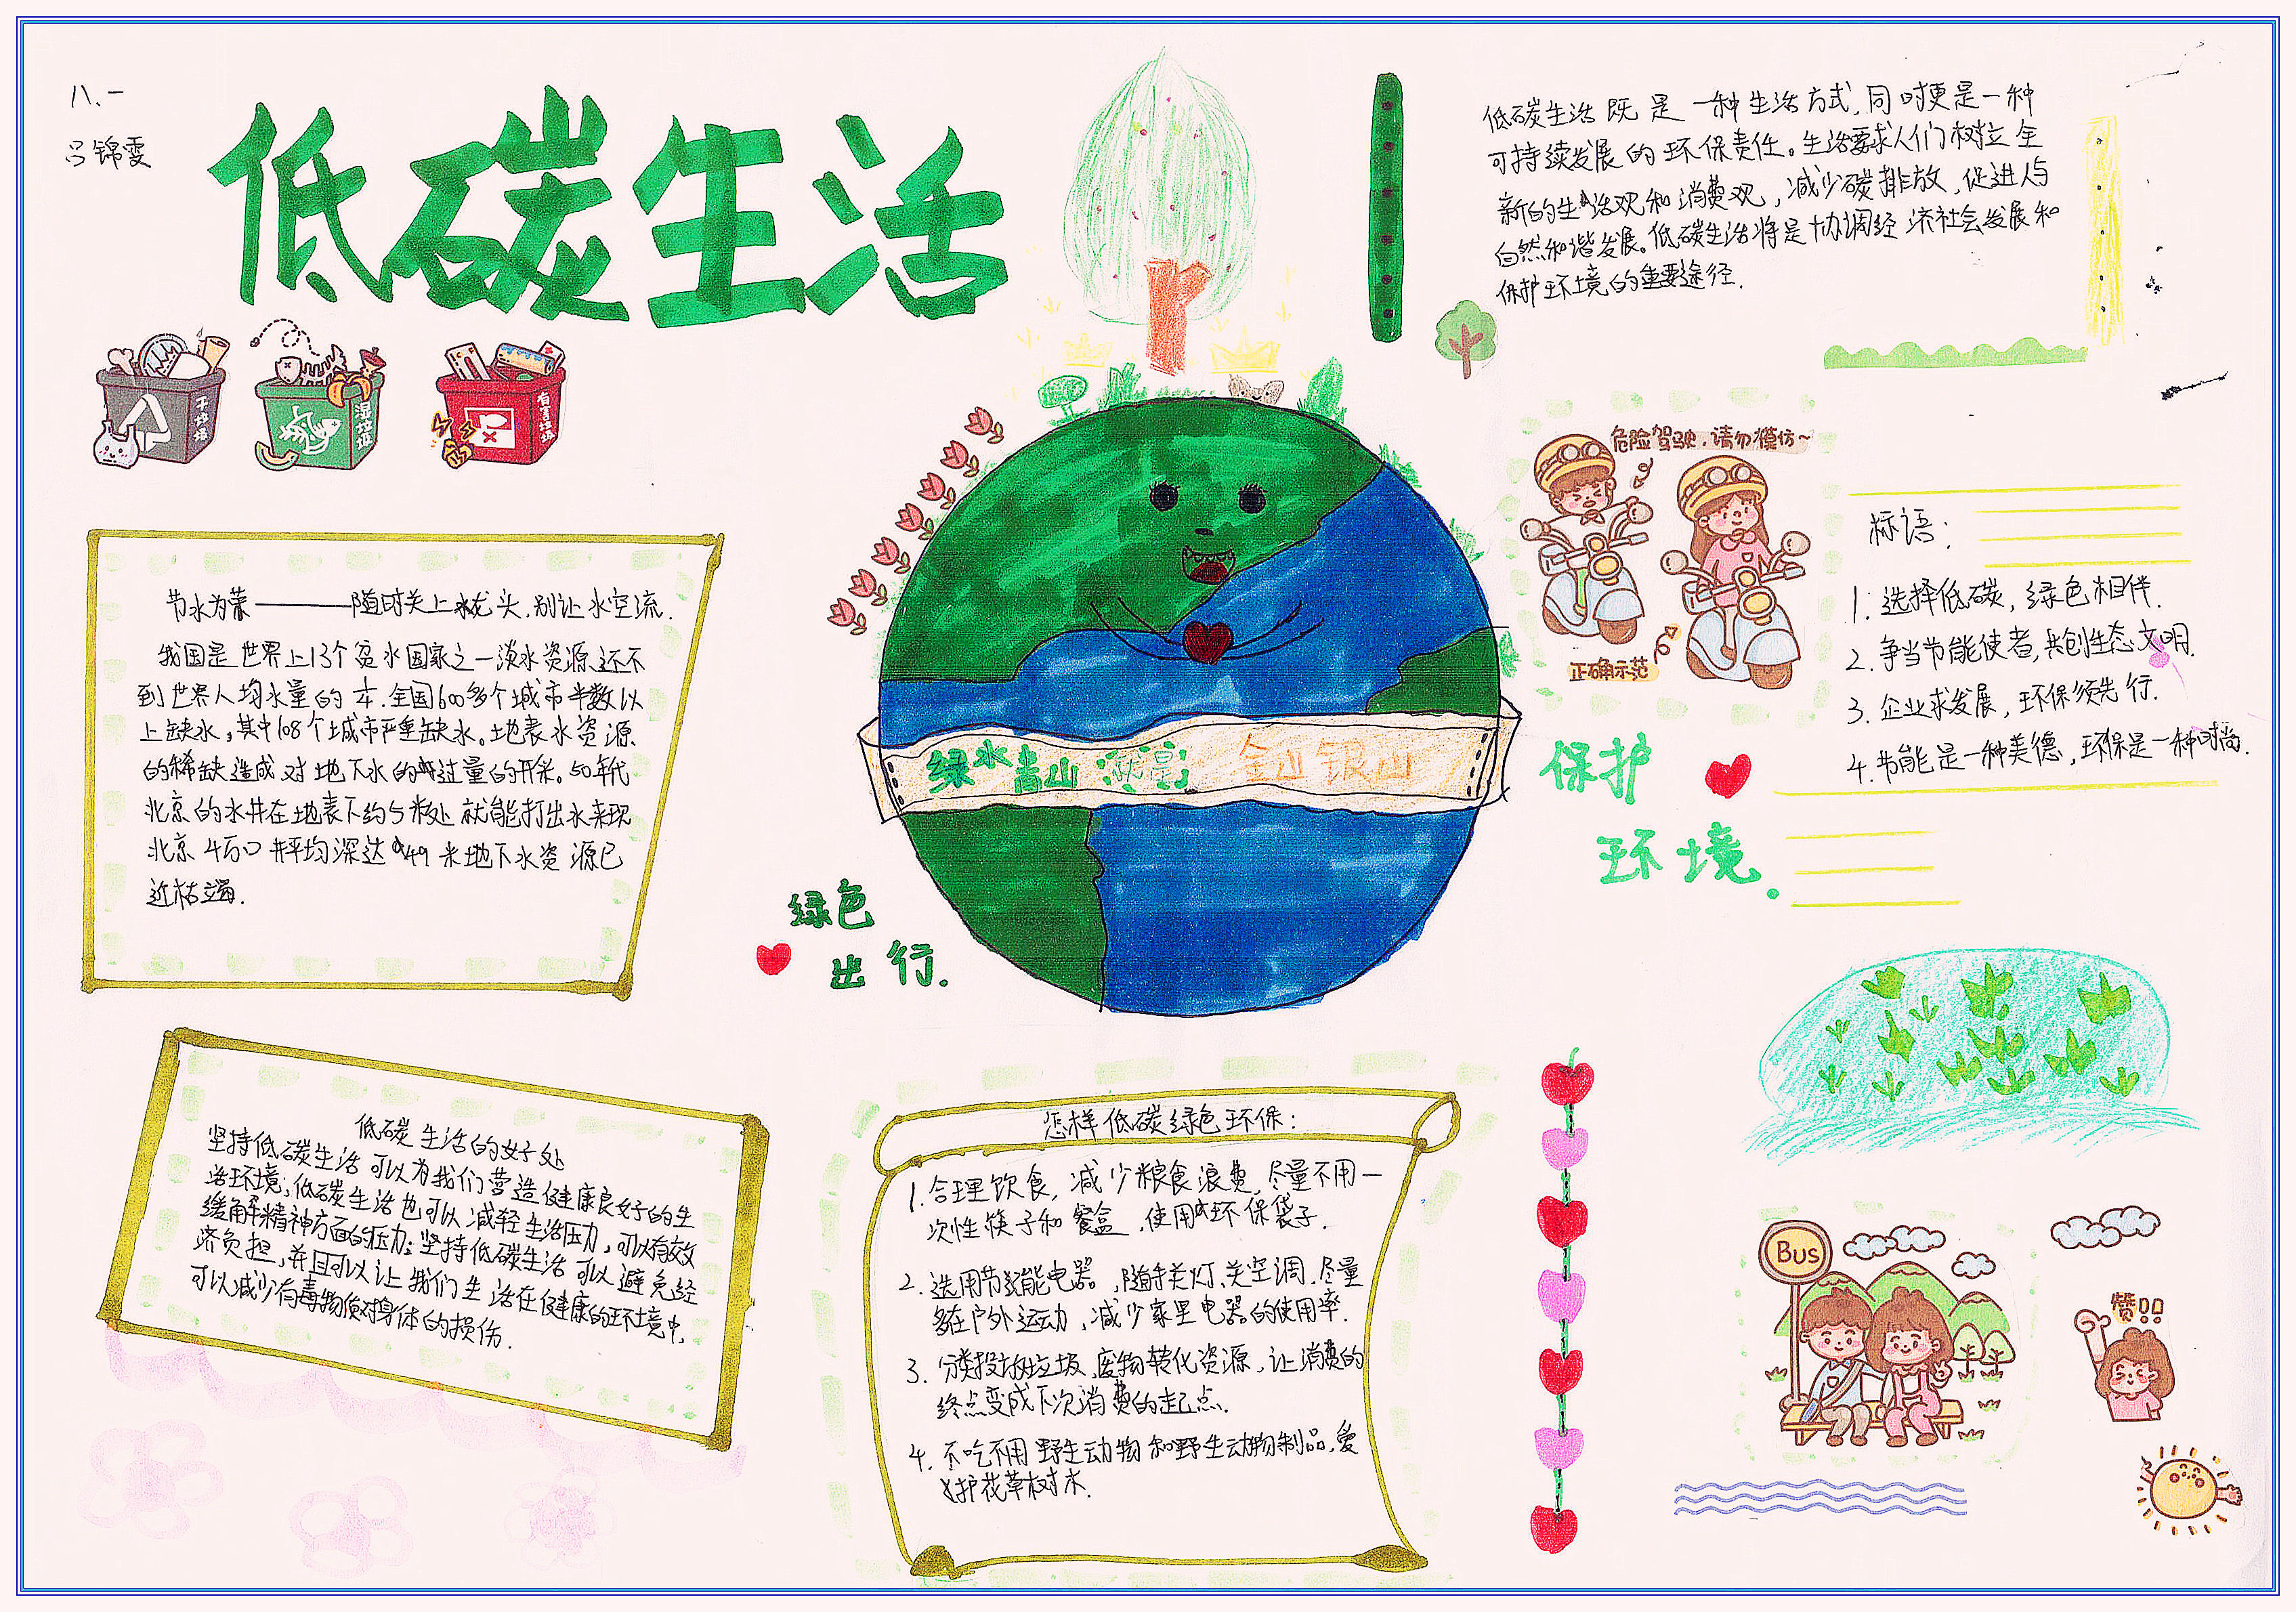 八、一
吕锦雯
低碳生活
干垃圾
湿垃圾
有害垃圾
低碳生活既是一种生活方式,同时更是一种
可持续发展的环保责任。生活要求人们树立全
新的生活观和消费观,减少碳排放,促进人与
自然和谐发展。低碳生活将是协调经济社会发展和
保护环境的重要途径.
节水为荣————随时关上水龙头,别让水空流.
我国是世界上13个贫水国家之一淡水资源还不
到世界人均水量的 本.全国600多个城市半数以
上缺水,其中108个城市严重缺水。地表水资源
的稀缺造成对地下水的过量的开采。50年代
北京的水井在地表下约5米处就能打出水来现
北京4万口井平均深达49米地下水资源已
近枯竭.
危险驾驶,请勿模仿~
正确示范
标语:
1.选择低碳,绿色相伴.
2.争当节能使者,共创生态文明.
3.企业求发展,环保须先行.
4.节能是一种美德,环保是一种时尚.
绿水青山就是金山银山
保护
环境.
绿色
出行.
低碳生活的好处
坚持低碳生活可以为我们营造健康良好的生
活环境;低碳生活也可以减轻生活压力,可以有效
缓解精神方面的压力;坚持低碳生活可以避免经
济负担,并且可以让我们生活在健康的环境中,
可以减少有毒物质对身体的损伤.
怎样低碳绿色环保:
1.合理饮食,减少粮食浪费,尽量不用一
次性筷子和餐盒,使用环保袋子.
2.选用节能电器,随手关灯、关空调.尽量
多在户外运动,减少家里电器的使用率.
3.分类投放垃圾,废物转化资源,让消费的
终点变成下次消费的起点.
4.不吃不用野生动物和野生动物制品,爱
护花草树木.
Bus
赞!!